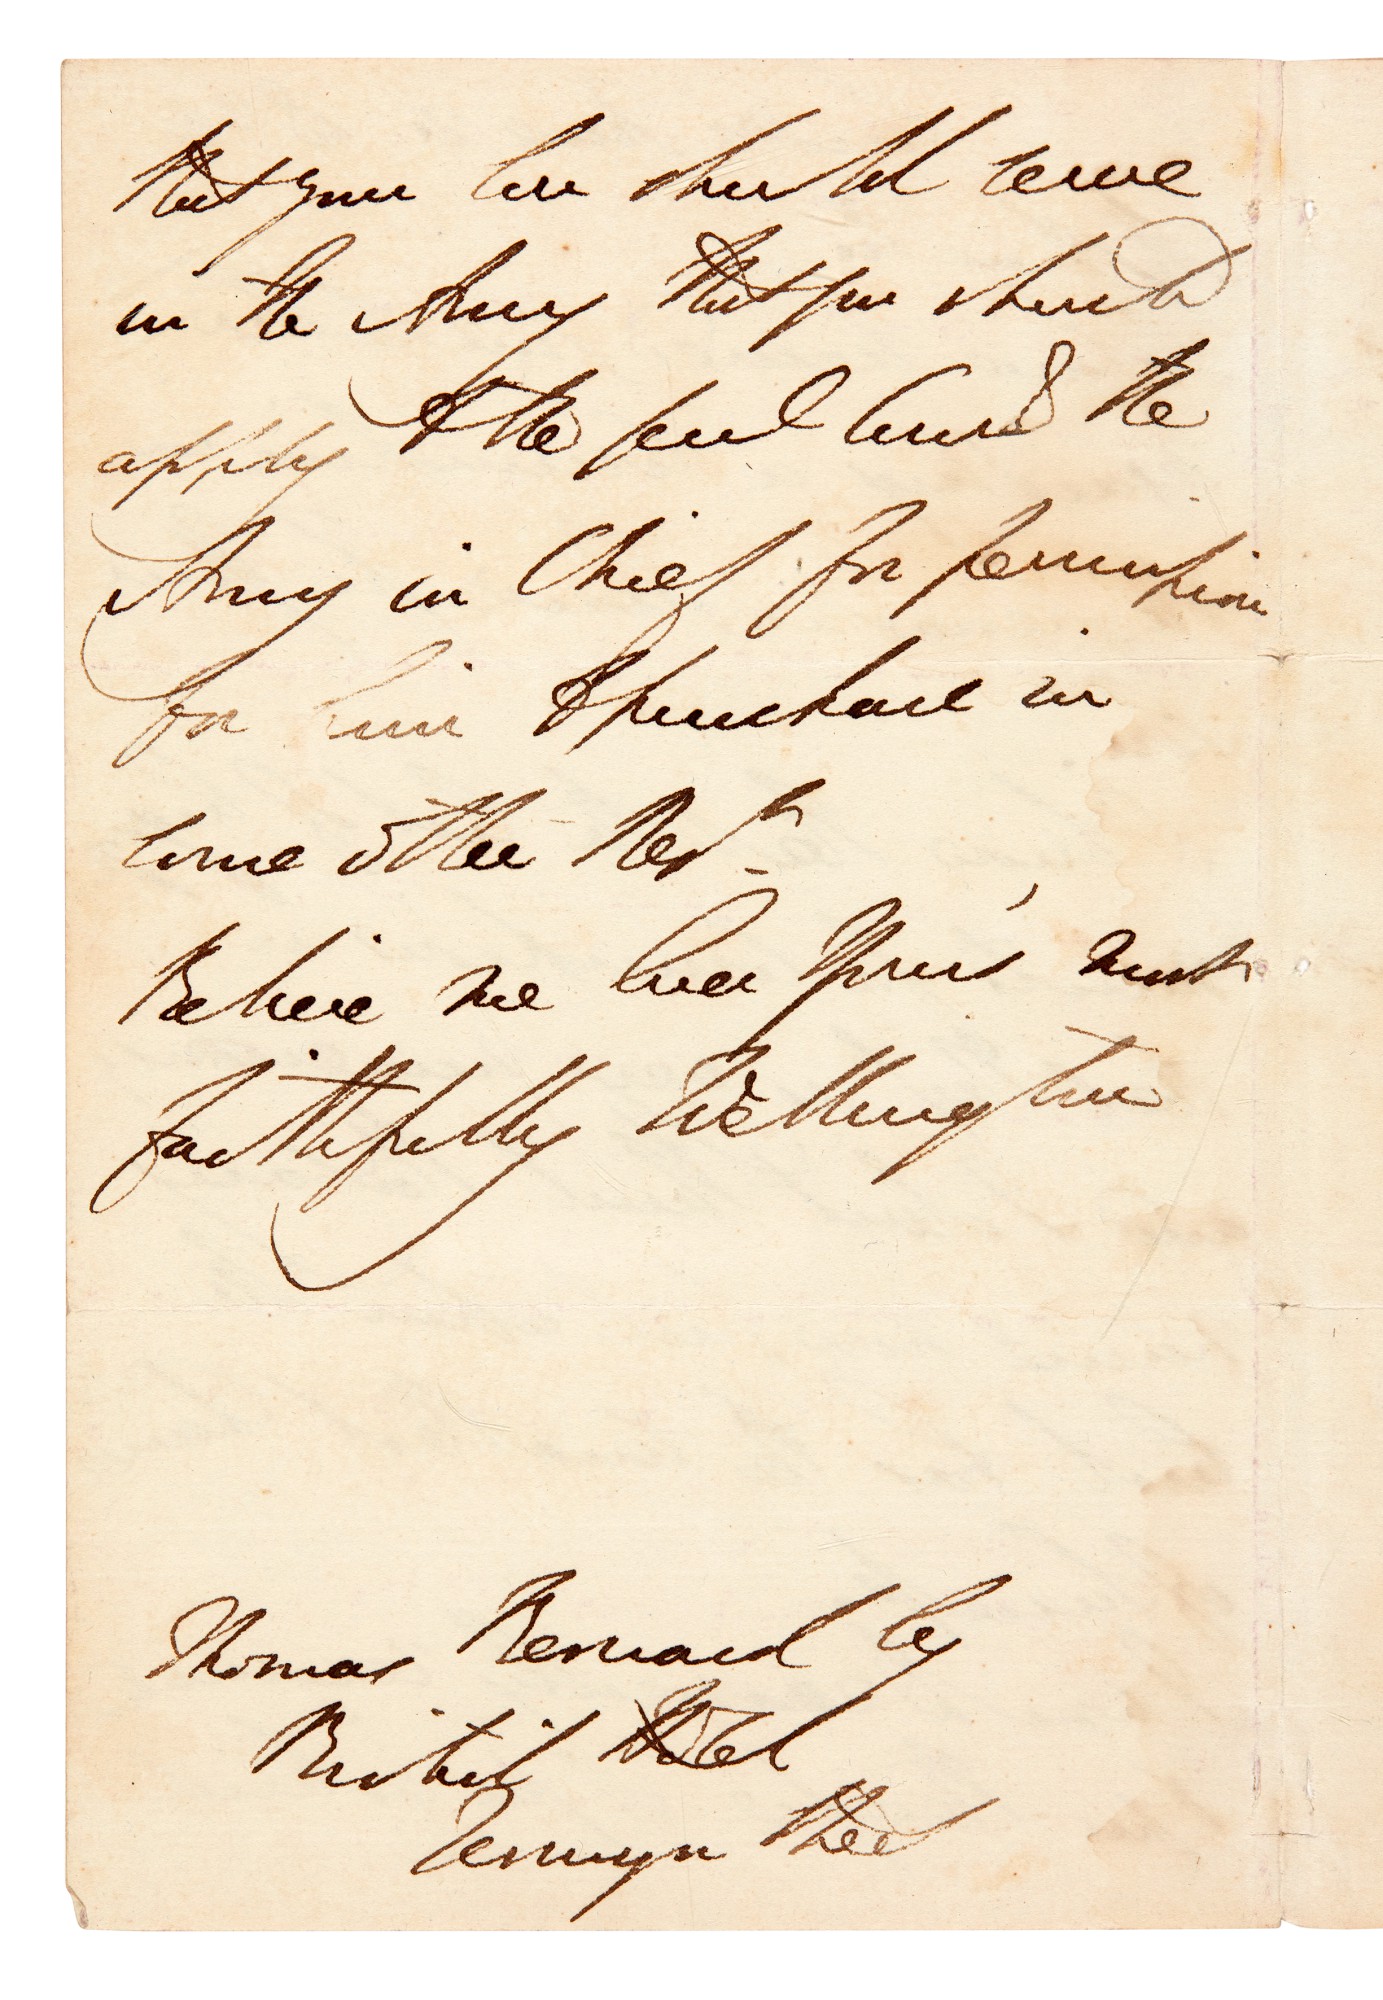 that your Son should serve
in the Army that you should
apply to the Gen.l Com.g the
Army in Chief for permission
for him to purchase in
some other Reg.t
Believe me Ever Yours most
faithfully Wellington
Thomas Bernard Esq
British Hotel
Jermyn Street